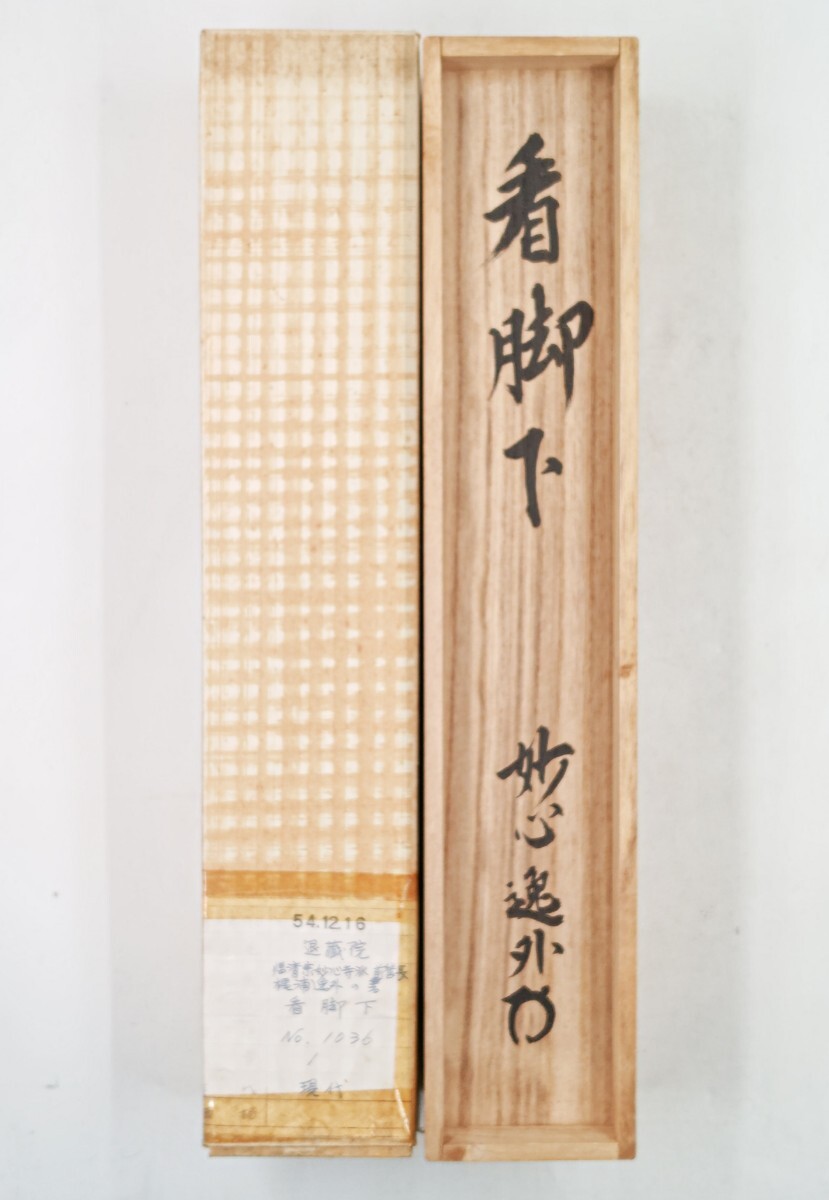 看脚下
妙心逸外
54.12.16
退蔵院
臨済宗妙心寺派 前管長
梶浦逸外の書
看脚下
No. 1036
1
現代